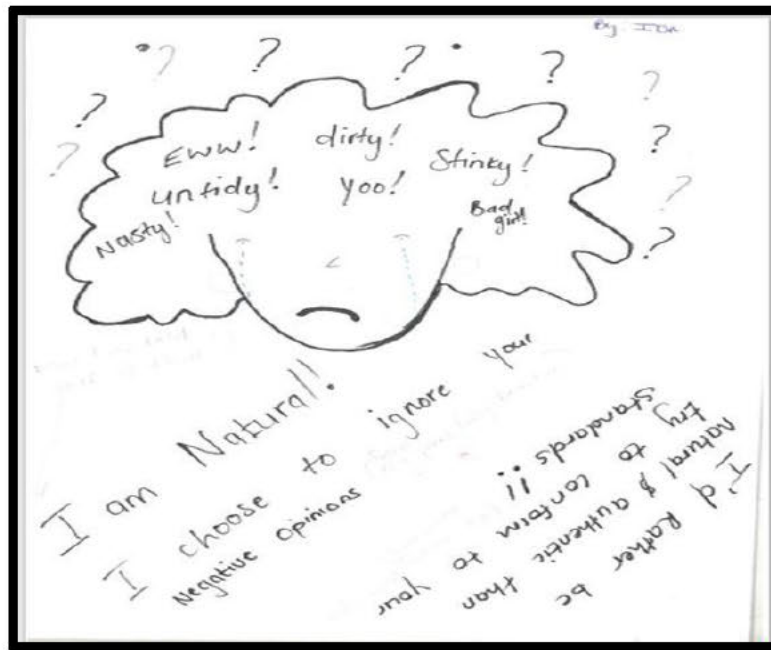 By:
Eww! dirty! Stinky!
untidy! Yoo! Bad girl!
Nasty!
I am Natural!
I choose to ignore your
Negative opinions
I'd Rather be
natural & authentic than
try to conform to your
standards !!